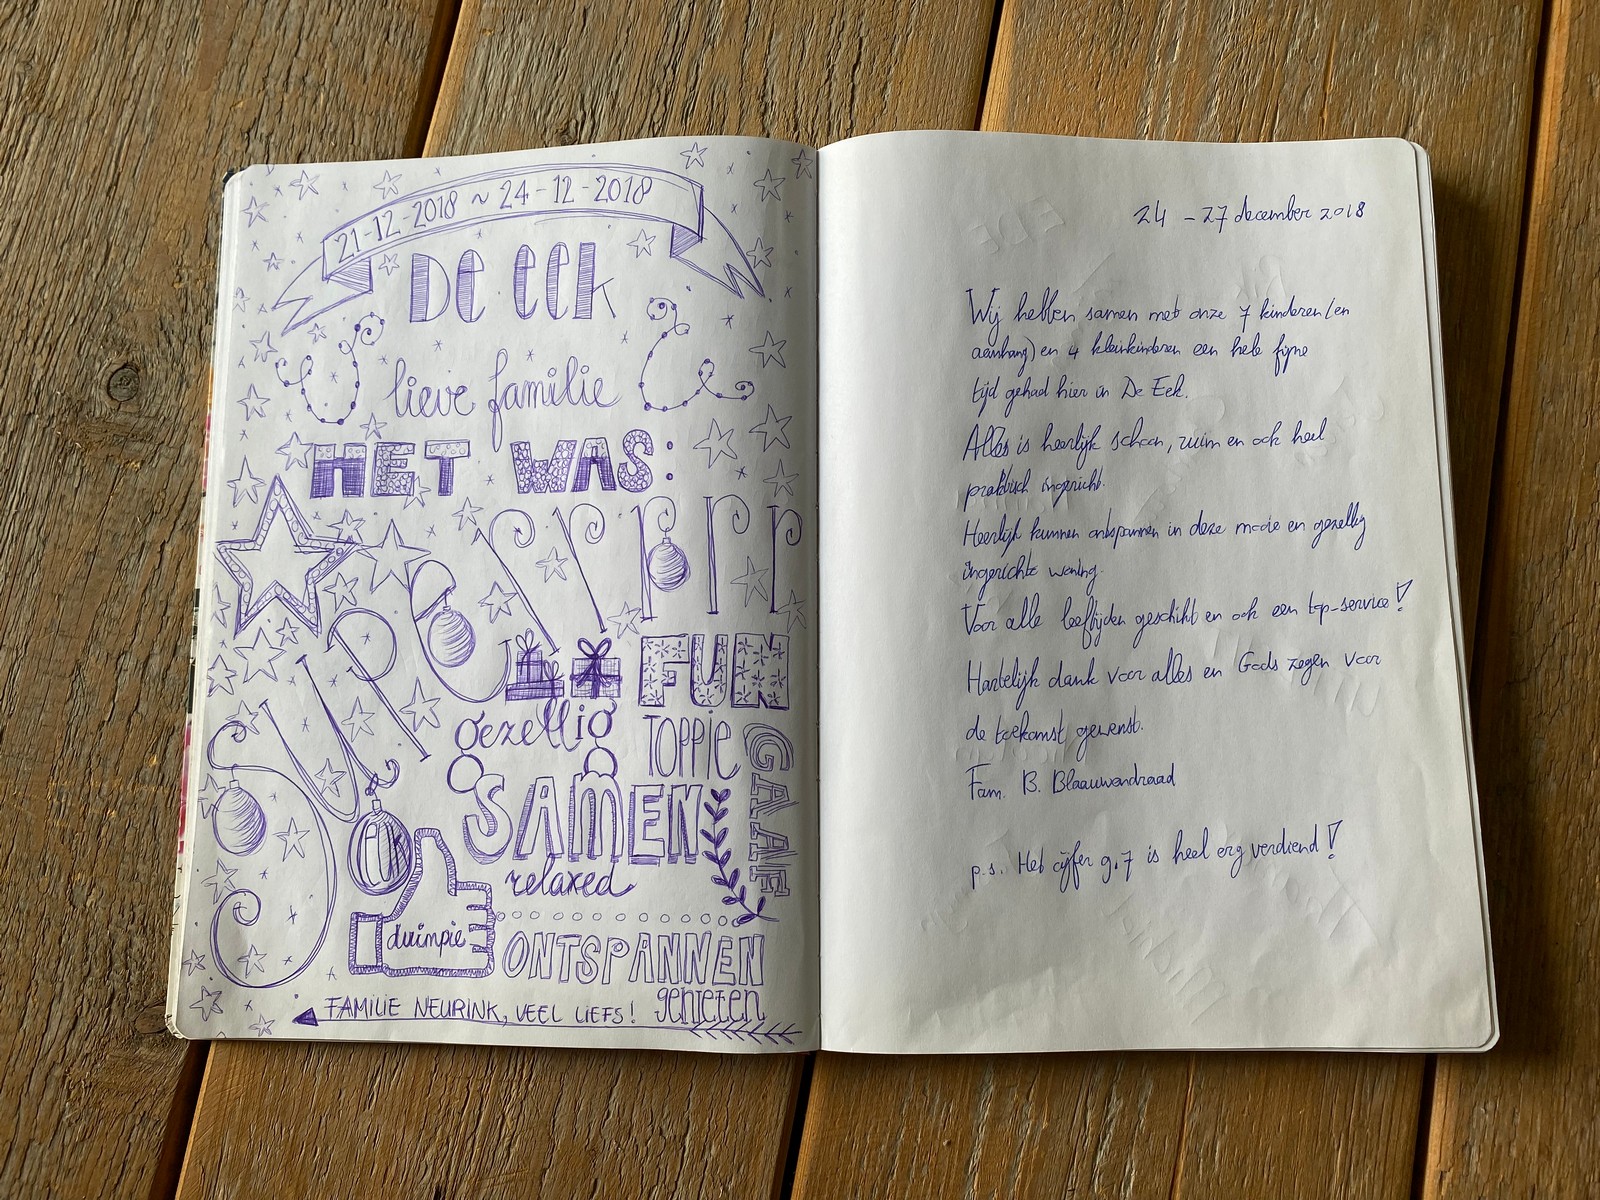 21-12-2018 ~ 24-12-2018
De eek
lieve familie
HET WAS:
Superrrrr
FUN
gezellig
TOPPIE
GAAF
SAMEN
relaxed
duimpie
ONTSPANNEN
genieten
FAMILIE NEURINK, VEEL LIEFS!
24 - 27 december 2018
Wij hebben samen met onze 7 kinderen (en
aanhang) en 4 kleinkinderen een hele fijne
tijd gehad hier in De Eek.
Alles is heerlijk schoon, ruim en ook heel
praktisch ingericht.
Heerlijk kunnen ontspannen in deze mooie en gezellig
ingerichte woning.
Voor alle leeftijden geschikt en ook een top-service!
Hartelijk dank voor alles en Gods zegen voor
de toekomst gewenst.
Fam. B. Blaauwendraad
p.s. Het cijfer 9.7 is heel erg verdiend!